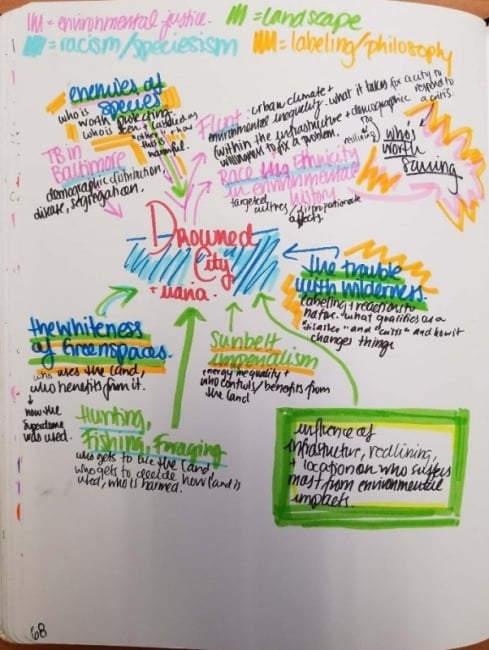 = environmental justice.
= landscape
= racism/speciesism
= labeling/philosophy
enemies of
species
who is
worth protecting
who is seen +
"other" + how
this is
harmful.
TB in
Baltimore
demographic distribution,
disease, segregation.
Flint
urban climate +
environmental inequality. what it takes for a city to
(within the infrastructure + demographic respond to
willingness to fix a problem. a crisis.
redlining
who's
worth
saving
Race and Ethnicity
in environmental
history
targeted
disproportionate
affects.
Drowned
City
+ mania.
the trouble
with wilderness.
labeling + reactions to
nature. what qualifies as a
"disaster" and "crisis" and how it
changes things
the whiteness
of Greenspaces.
who uses the land,
who benefits from it.
↳ how the
Superdome
was used.
Sunbelt
imperialism
energy inequality +
who controls/benefits from
the land
Hunting,
Fishing, Foraging
who gets to use the land,
who gets to decide how land is
used, who is harmed.
influence of
infrastructure, redlining,
+ location on who suffers
most from environmental
impacts.
68